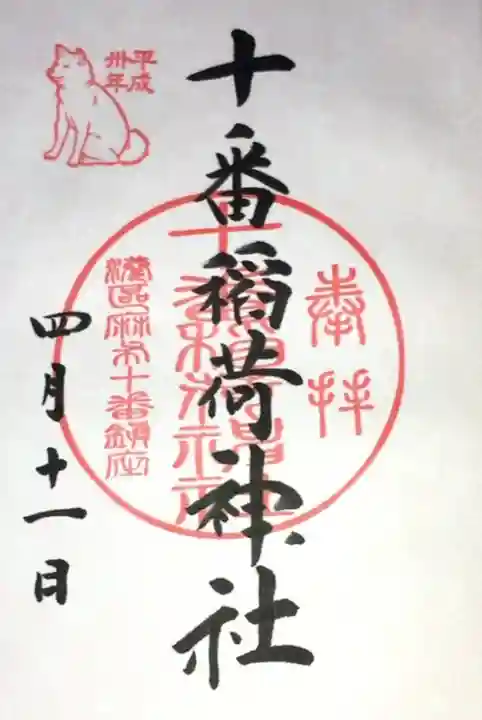 奉拝
十番稲荷神社
港区麻布十番鎮座
四月十一日
平成
卅年